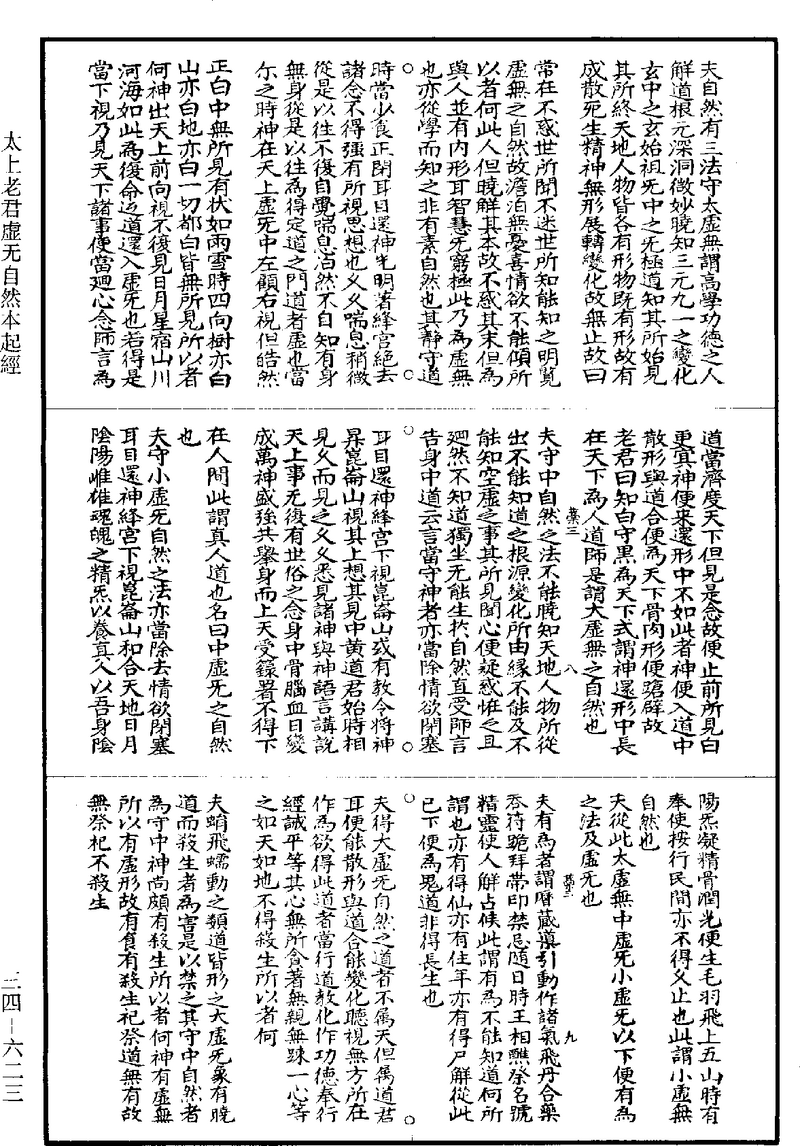 夫自然有三法守太虛無謂高學功德之人
解道根元深洞微妙曉知三元九一之變化
玄中之玄始祖炁中之炁極道知其所始見
其所終天地人物皆各有形物既有形故有
成散死生精神無形展轉變化故無止故曰
常在不惑世所聞不迷世所知能知之明覽
虛無之自然故澹泊無憂喜情欲不能傾所
以者何此人但曉解其本故不惑其末但為
與人並有內形耳智慧无窮極此乃為虛無
也亦從學而知之非有素自然也其靜守道
時當少食正閉耳目還神光明著絳宮絕去
諸念不得強有所視思想也久久喘息稍微
從是以往不復自覺喘息泊然不自知有身
無身從是以往為得定道之門道者虛也當
尒之時神在天上虛炁中左顧右視但皓然
正白中無所見有狀如雨雪時四向樹亦白
山亦白地亦白一切都白皆無所見所以者
何神出天上前向視不復見日月星宿山川
河海如此為復命近道還入虛炁也若得是
當下視乃見天下諸事便當廻心念師言為
道當濟度天下但見是念故便止前所見白
更冥神便来還形中不如此者神便入道中
散形與道合便為天下骨肉形便猪辟故
老君曰知白守黑為天下式謂神還形中長
在天下為人道師是謂大虛無之自然也
夫守中自然之法不能曉知天地人物所從
出不能知道之根源變化所由緣不能及不
能知空虛之事其所見聞心便疑惑恠之且
廻然不知道獨坐无能生扵自然直受師言
告身中道云言當守神者亦當除情欲閉塞
耳目還神絳宮下視崑崙山或有教令將神
昇崑崙山視其上想其見中黄道君始時相
見久而見之久久悉見諸神與神語言講說
天上事无復有世俗之念身中骨腦血日變
成萬神盛強共舉身而上天受錄署不得下
在人間此謂真人道也名曰中虛炁之自然
也
夫守小虛炁自然之法亦當除去情欲閉塞
耳目還神絳宮下視崑崙山和合天地日月
陰陽雌雄魂魄之精炁以養真人以吾身陰
陽炁凝精骨潤光便生毛羽飛上五山時有
奉使按行民間亦不得久止也此謂小虛無
自然也
夫從此太虛無中虛炁小虛炁以下便有為
之法及虛炁也
夫有為者謂曆藏導引動作諸氣飛丹合藥
吞符跪拜帶印禁忌隨日時王相醮祭名號
精靈使人解占候此謂有為不能知道何所
謂也亦有得仙亦有住年亦有得尸解從此
已下便為鬼道非得長生也
夫得大虛炁自然之道者不属天但属道君
耳便能散形與道合能變化聽視無方所在
作為欲得此道者當行道教化作功德奉行
經誡平等其心無所貪著無親無踈一心等
之如天如地不得殺生所以者何
夫蜎飛蠕動之類道皆形之大虛炁象有曉
道而殺生者為害是以禁之其守中自然者
為守中神尚頗有殺生所以者何神有虛無
所以有虛形故有食有殺生祀祭道無有故
無祭祀不殺生
葉三 八
葉三 九
太上老君虛无自然本起經
三四-六二三